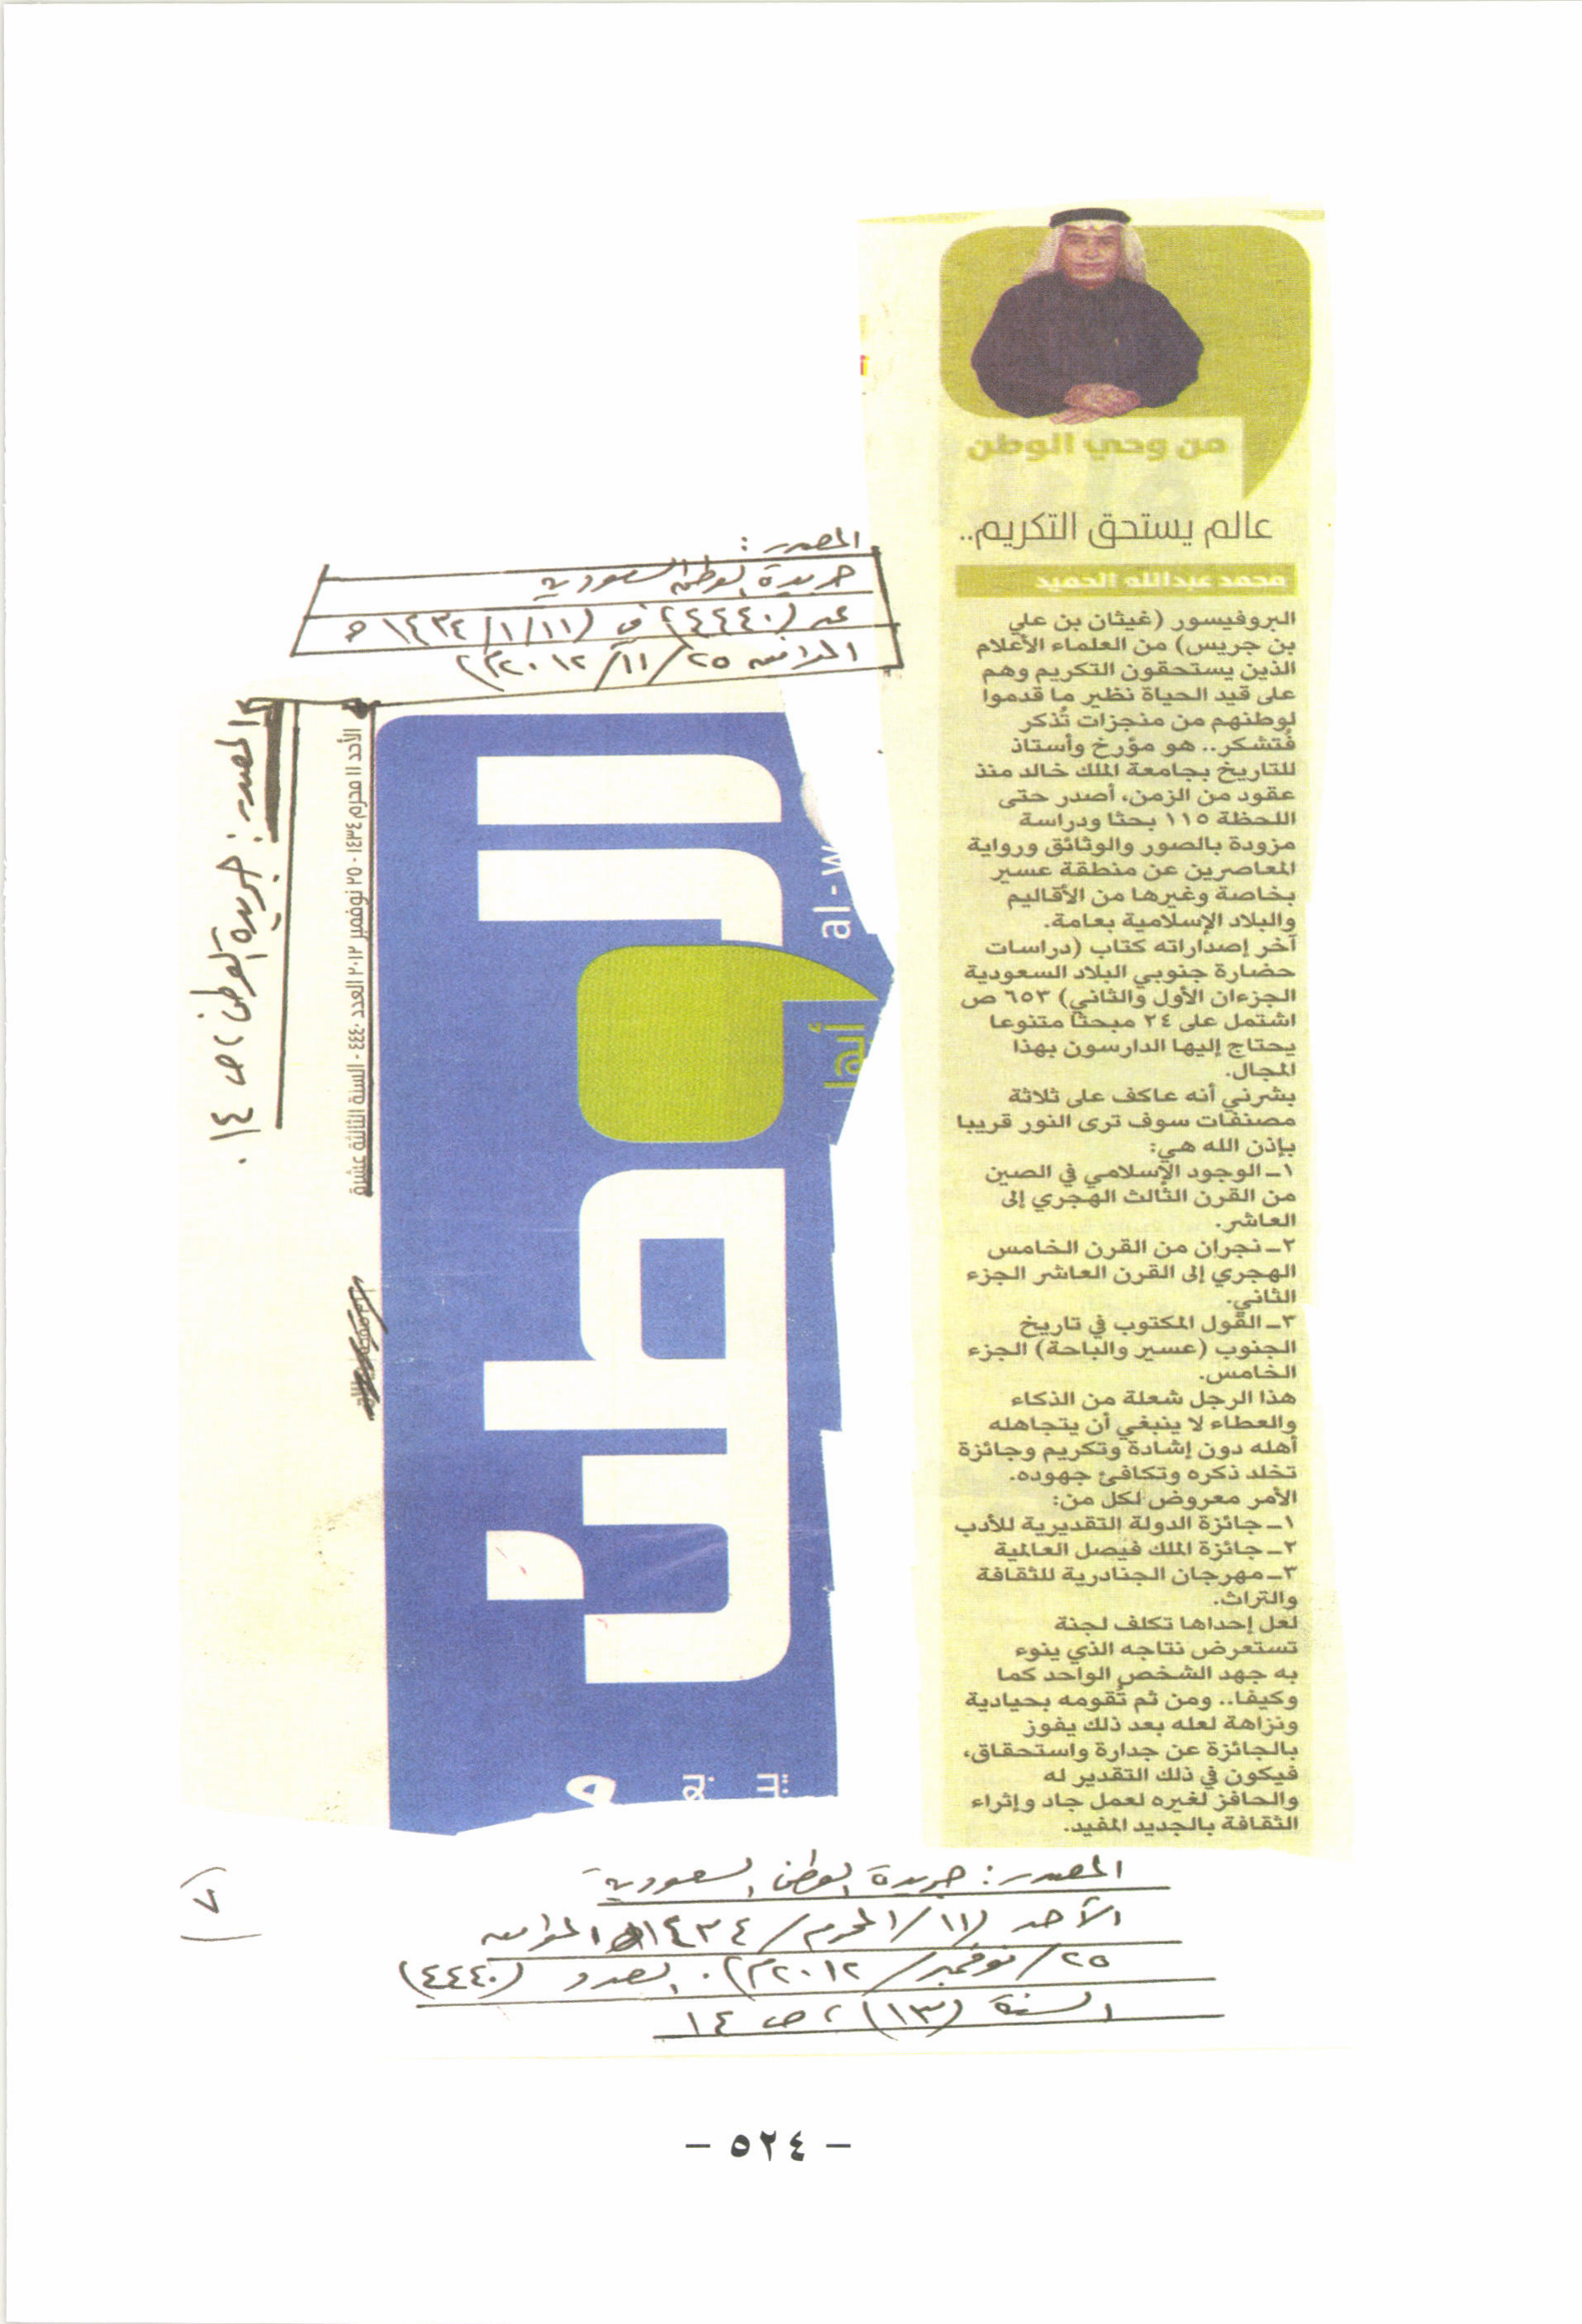 من وحي الوطن
عالم يستحق التكريم..
محمد عبدالله الحميد
البروفيسور (غيثان بن علي
بن جريس) من العلماء الأعلام
الذين يستحقون التكريم وهم
على قيد الحياة نظير ما قدموا
لوطنهم من منجزات تُذكر
فُتشكر.. هو مؤرخ وأستاذ
للتاريخ بجامعة الملك خالد منذ
عقود من الزمن، أصدر حتى
اللحظة ١١٥ بحثا ودراسة
مزودة بالصور والوثائق ورواية
المعاصرين عن منطقة عسير
بخاصة وغيرها من الأقاليم
والبلاد الإسلامية بعامة.
آخر إصداراته كتاب (دراسات
حضارة جنوبي البلاد السعودية
الجزءان الأول والثاني) ٦٥٣ ص
اشتمل على ٢٤ مبحثا متنوعا
يحتاج إليها الدارسون بهذا
المجال.
بشرني أنه عاكف على ثلاثة
مصنفات سوف ترى النور قريبا
بإذن الله هي:
١ـ الوجود الإسلامي في الصين
من القرن الثالث الهجري إلى
العاشر.
٢ـ نجران من القرن الخامس
الهجري إلى القرن العاشر الجزء
الثاني.
٣ـ القول المكتوب في تاريخ
الجنوب (عسير والباحة) الجزء
الخامس.
هذا الرجل شعلة من الذكاء
والعطاء لا ينبغي أن يتجاهله
أهله دون إشادة وتكريم وجائزة
تخلد ذكره وتكافئ جهوده.
الأمر معروض لكل من:
١ـ جائزة الدولة التقديرية للأدب
٢ـ جائزة الملك فيصل العالمية
٣ـ مهرجان الجنادرية للثقافة
والتراث.
لعل إحداها تكلف لجنة
تستعرض نتاجه الذي ينوء
به جهد الشخص الواحد كما
وكيفا.. ومن ثم تُقومه بحيادية
ونزاهة لعله بعد ذلك يفوز
بالجائزة عن جدارة واستحقاق،
فيكون في ذلك التقدير له
والحافز لغيره لعمل جاد وإثراء
الثقافة بالجديد المفيد.
المصدر:
جريدة الوطن السعودية
عدد (٤٤٤٠) في (١١/١/١٤٣٤هـ
الموافق ٢٥/١١/٢٠١٢م)
الوطن
al-w
أبها
الأحد ١١ محرم ١٤٣٤ - ٢٥ نوفمبر ٢٠١٢ العدد ٤٤٤٠ - السنة الثالثة عشرة
المصدر: جريدة الوطن، ص ١٤.
المصدر: جريدة الوطن السعودية
الأحد (١١/المحرم/١٤٣٤هـ الموافق
٢٥/نوفمبر/٢٠١٢م). العدد (٤٤٤٠)
السنة (١٣)، ص ١٤
٧
- ٥٢٤ -